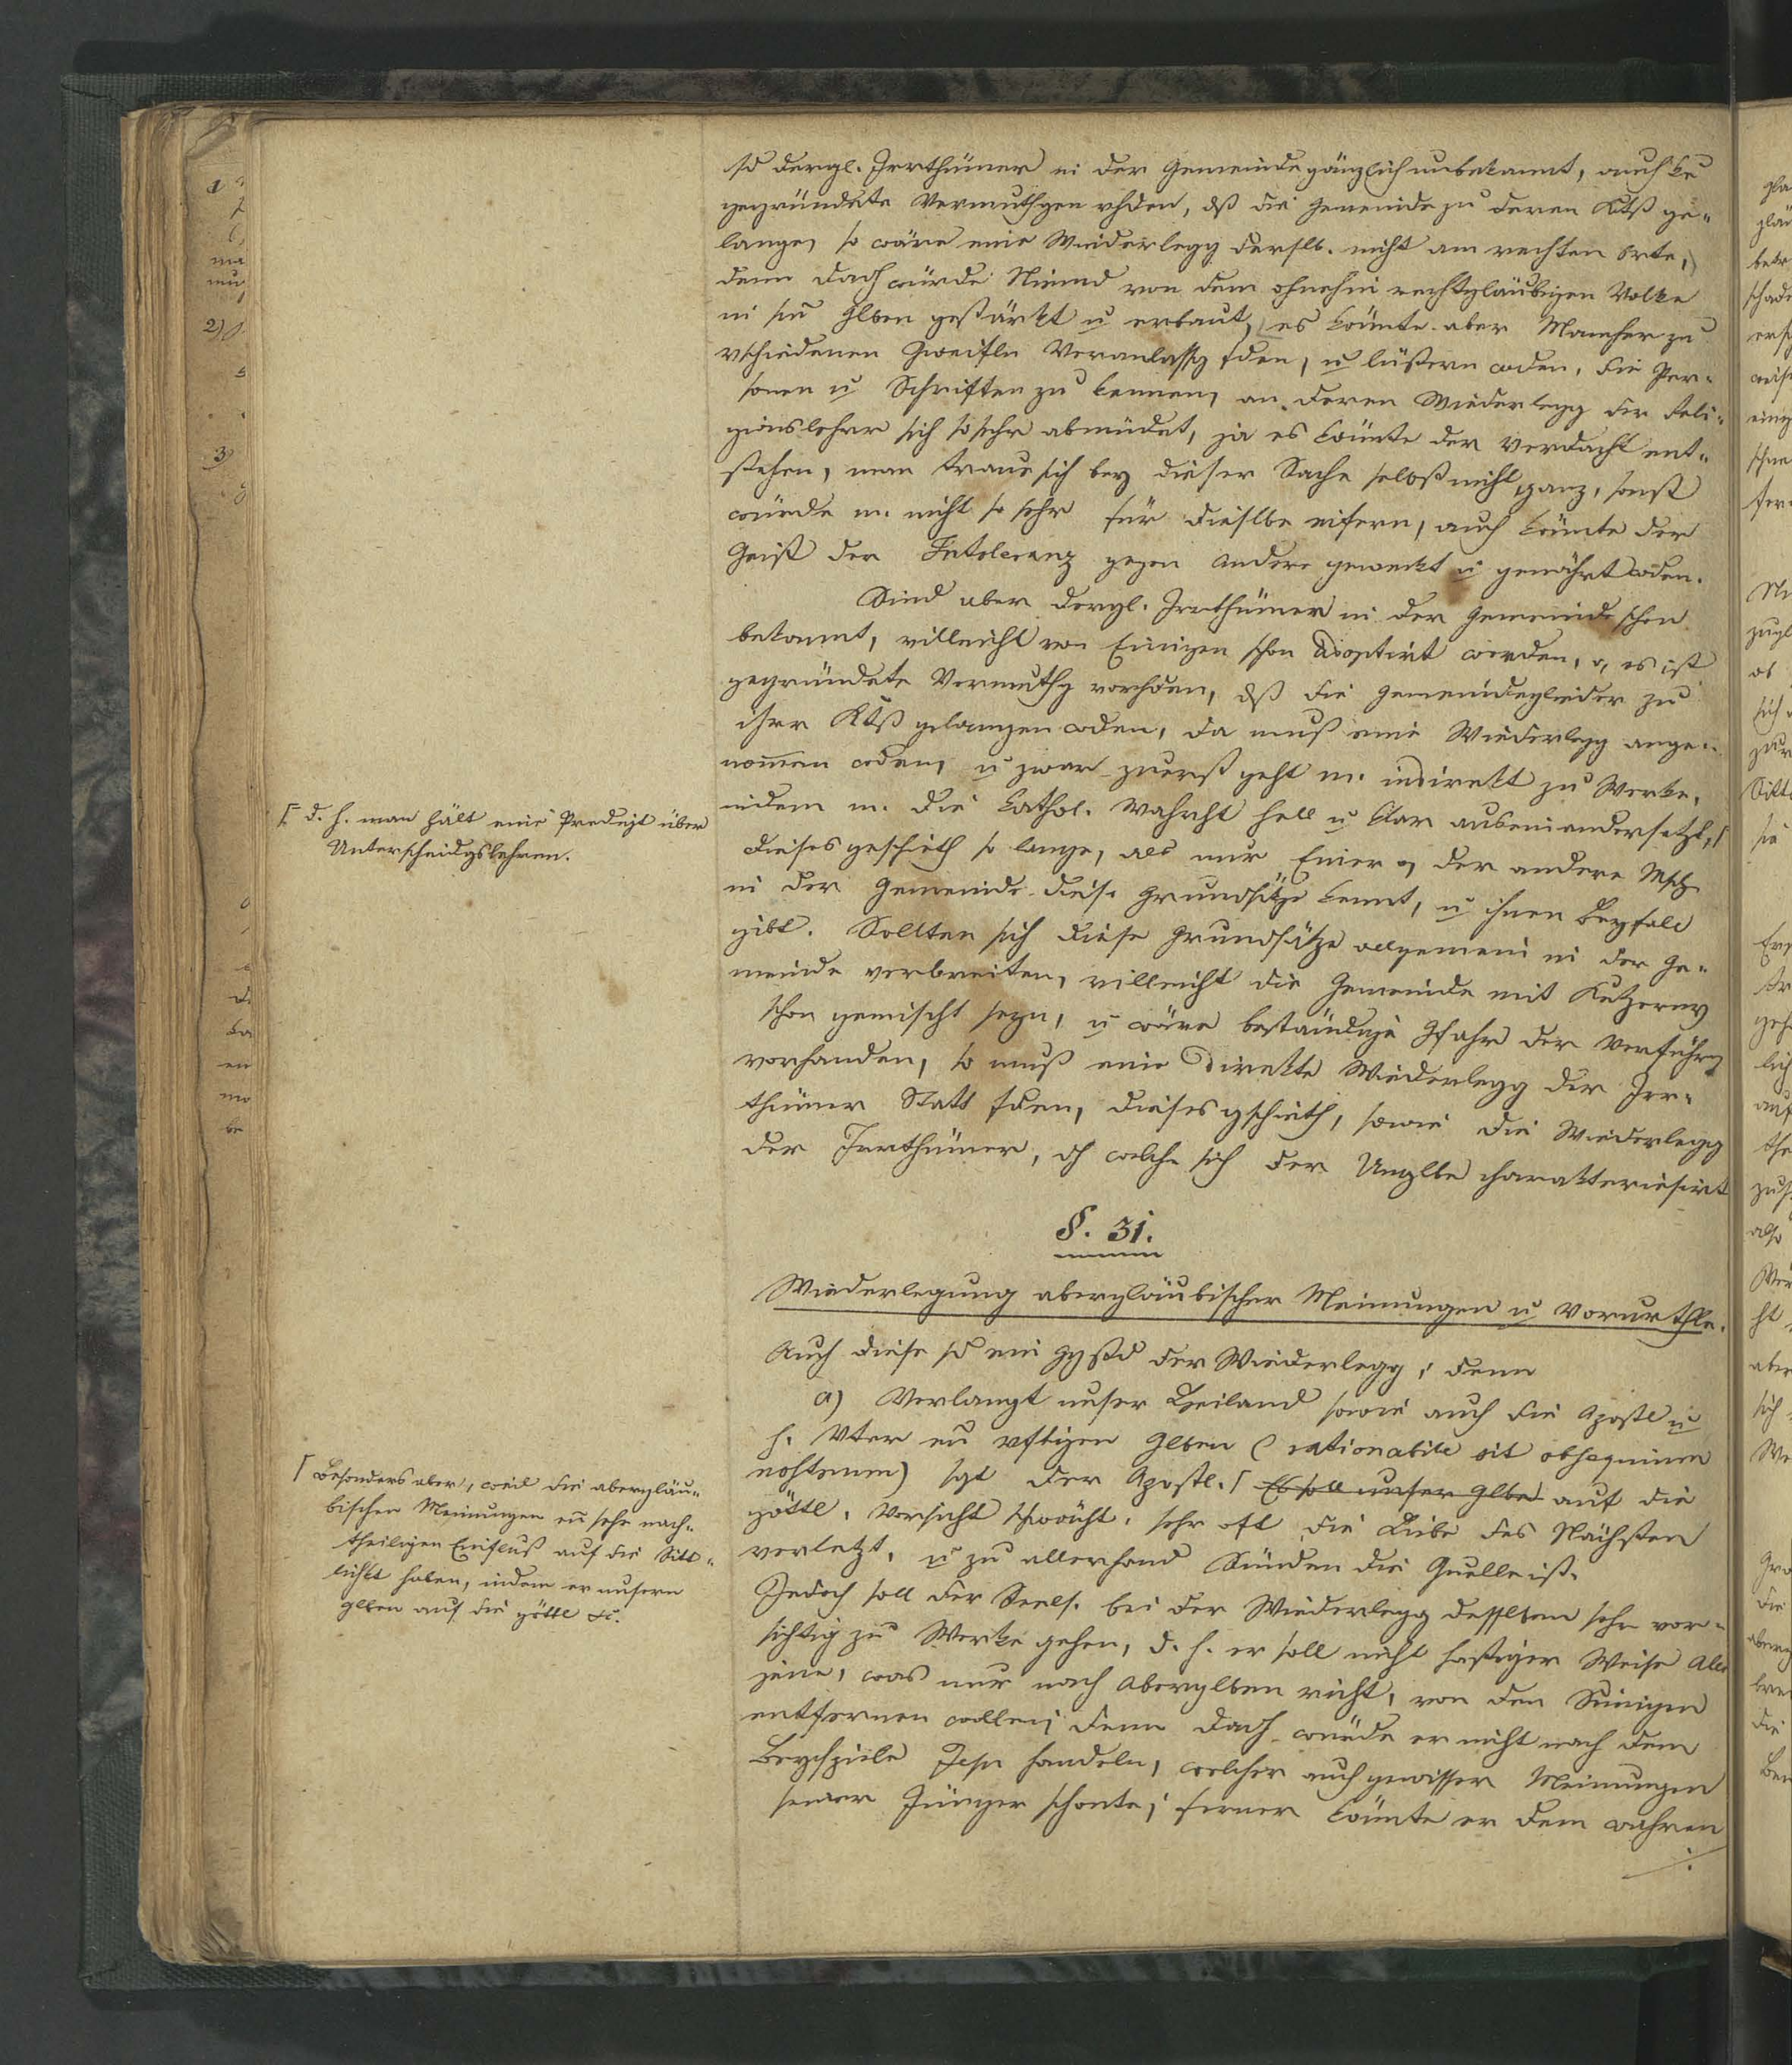 sd dergl. Irrthümer in der Gemeinde gänzlich unbekannt, auch ke
gegründete Vermuthgen vhden, dß die Gemeinde zu deren Ktß ge-
lange, so wäre eine Wiederlegg derslb. nicht am rechten Orte,
denn dadch würde Niemd von dem ohnehin rechtgläubigen Volke
in sm̄ Glben gestärkt u erbaut, es könnte aber Mancher zu
vschiedenen Zweifeln Veranlassg fden, u lüstern wden, die Per-
sonen u Schriften zu kennen, an deren Wiederlegg der Reli-
gionslehrer sich so sehr abmüdet, ja es könnte der Verdacht ent-
stehen, man traue sich bey dieser Sache selbst nicht ganz, sonst
würde m. nicht so sehr für dieslbe eifern, auch könnte der
Geist der Intoleranz gegen Andere geweckt u genährt wden.
Sind aber dergl. Irrthümer in der Gemeinde schon
bekannt, villeicht von Einigen schon adoptirt worden, o, es ist
gegründete Vermuthg vorhden, dß die Gemeindeglieder zu
ihrer Ktß gelangen wden, da muß eine Wiederlegg ange-
nom̄en wden, u zwar zuerst geht m. indirekt zu Werke,
indem m. die kathol. Wahrht hell u klar auseinandersetzt, ⌈
⌈ d. h. man hält eine Predigt über
Unterscheidgslehren.
dieses geschieth so lange, als nur Einer o, der andere Msch
in der Gemeinde diese Grundsätze kennt, u ihnen Beyfall
gibt. Sollten sich diese Grundsätze allgemein in der Ge-
meinde verbreiten, villeicht die Gemeinde mit Ketzern
schon gemischt seyn, u wäre beständige Gfahr der Verführg
vorhanden, so muß eine direkte Wiederlegg der Irr-
thümer Statt fden, dieses gschieth, sowie die Wiederlegg
der Irrthümer, dch welche sich der Unglbe charakterisirt
§. 31.
Wiederlegung abergläubischer Meinungen u Vorurthle.
Auch diese sd ein Ggstd der Wiederlegg; denn
a) Verlangt unser Heiland sowie auch die Apostl u
h. Vter en vftigen Glben (rationabile sit obsequium
vestrum) sgt der Apostl. ⌈ Es soll unser Glbe auf die
göttl. Vorsicht schwächt, sehr oft die Liebe des Nächsten
verletzt, u zu allerhand Sünden die Quelle ist.
⌈ Besonders aber, weil die abergläu-
bischen Meinungen en̄ sehr nach-
theiligen Einfluß auf die Sitt-
lichkt haben, indem er unsern
Glben auf die göttl etc.
Jedoch soll der Seels. bei der Wiederlegg desselben sehr vor-
sichtig zu Werke gehen, d. h. er soll nicht hastiger Weise Alles
jene, was nur nach Aberglben richt, von den Seinigen
entfernen wollen; denn dadch würde er nicht nach dem
Beyspiele Jesu handeln, welcher auch gewisser Meinungen
seiner Jünger schonte; ferner könnte er dem wahren